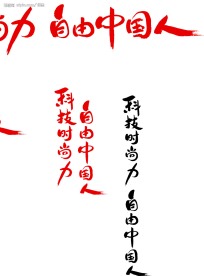 尚力 自由中国人
科技时尚力
自由中国人
科技时尚力 自由中国人